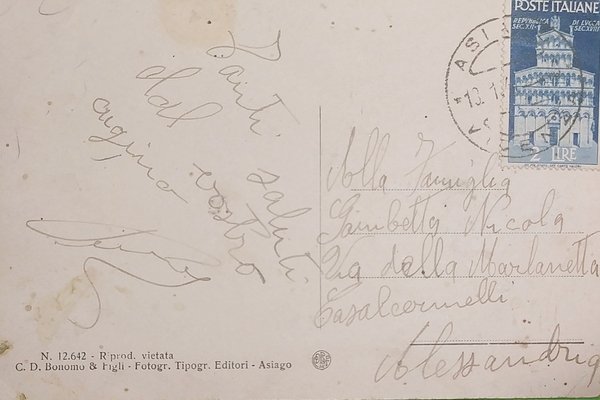 Tanti saluti
dal vostro
cugino
POSTE ITALIANE
REPUBBLICA DI LUCCA
SEC. XII - SEC. XVIII
2 LIRE
Alla Famiglia
Gambetta Nicola
Via della Marlanetta
Casalcermelli
Alessandria
N. 12.642 - Riprod. vietata
C. D. Bonomo & Figli - Fotogr. Tipogr. Editori - Asiago